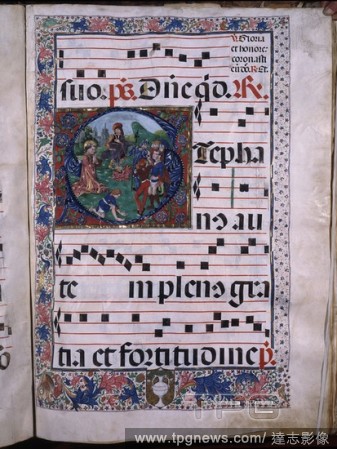 V. Gloria
et honore
coronasti
eū dñe. R. Et.
suo. ps. Dñe qd. R.
Stepha
nus au
te m plenus gra
tia et fortitudine p.
o
www.tpgnews.com/ 達志影像